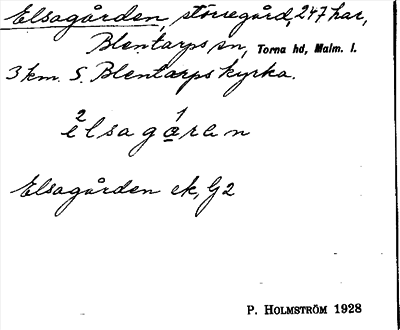 Elsagården, större gård, 247 har,
Blentarps sn, Torna hd, Malm. l.
3 km. S. Blentarps kyrka.
2 1
elsagáran
Elsagården ek, G2
P. HOLMSTRÖM 1928